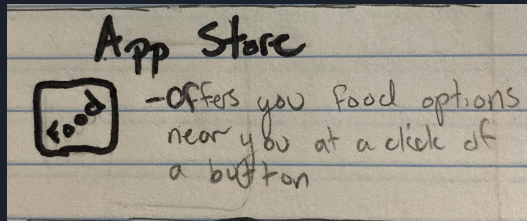 App Store
Food
-Offers you food options
near you at a click of
a button